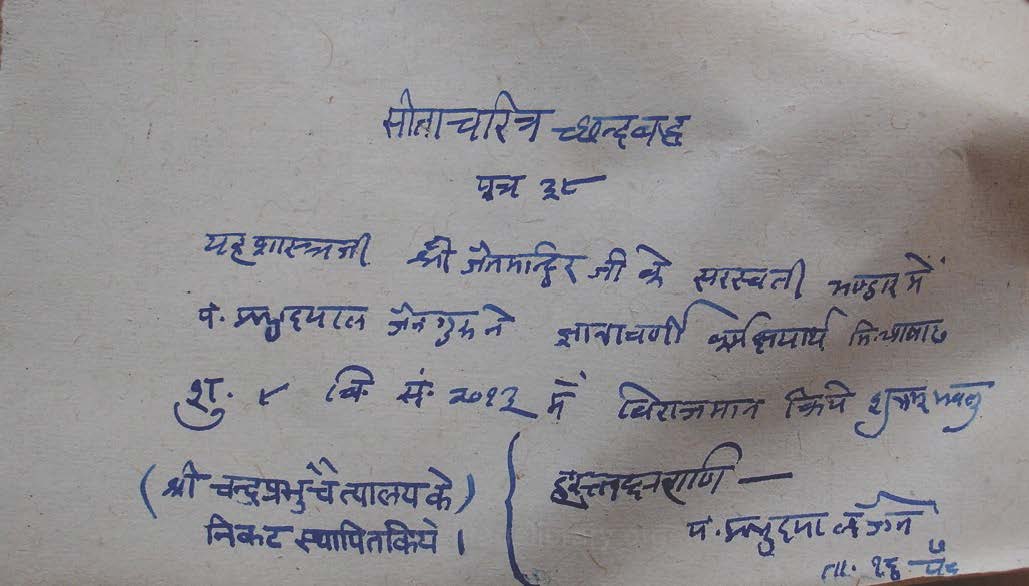 सीताचरित्र छन्दवद्ध
पत्र ३८
यह शास्त्रजी श्री जैनमन्दिर जी के सरस्वती भण्डार में
पं. प्रभुदयाल जैन गुरु ने ज्ञानावर्णी कर्मक्षयार्थ मि. आषाढ
शु. ८ वि. सं. २०१३ में विराजमान किये शुभम् भवतु
(श्री चन्द्रप्रभु चैत्यालय के)
निकट स्थापित किये ।
पं. प्रभुदयाल जैन
ता. १६